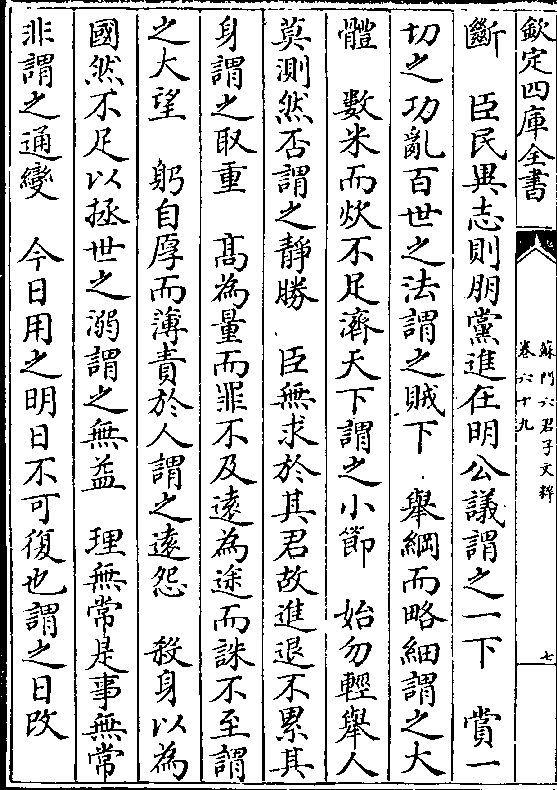 欽定四庫全書
蘇門六君子文粹
卷六十九
七
斷　臣民異志則朋黨進在明公議謂之一下　賞一
切之功亂百世之法謂之賊下　舉綱而略細謂之大
體　數米而炊不足濟天下謂之小節　始勿輕舉人
莫測然否謂之靜勝　臣無求於其君故進退不累其
身謂之取重　髙為量而罪不及逺為途而誅不至謂
之大望　躬自厚而薄責於人謂之逺怨　殺身以為
國然不足以拯世之溺謂之無益　理無常是事無常
非謂之通變　今日用之明日不可復也謂之日改